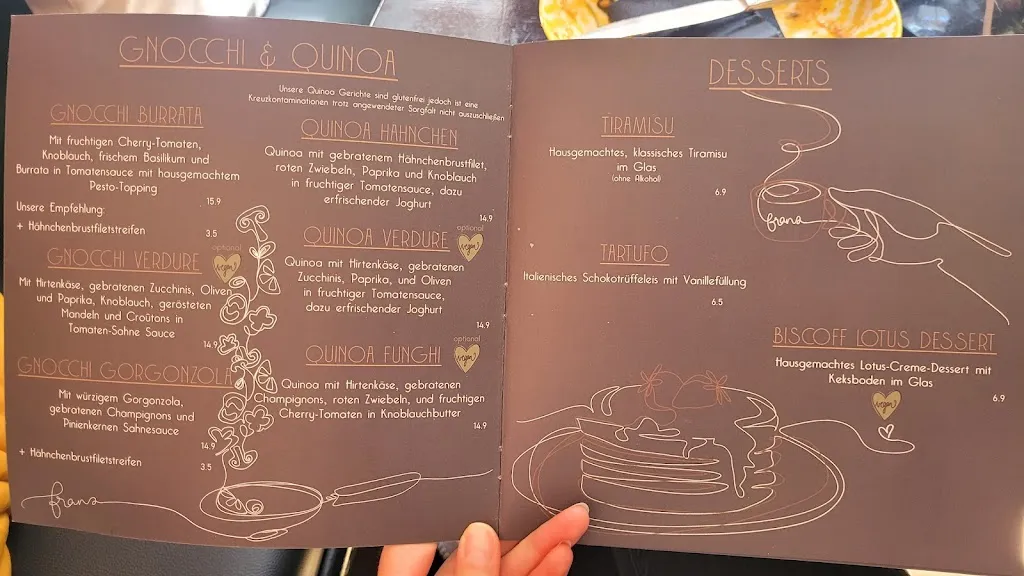 GNOCCHI & QUINOA
Unsere Quinoa Gerichte sind glutenfrei jedoch ist eine
Kreuzkontaminationen trotz angewendeter Sorgfalt nicht auszuschließen
GNOCCHI BURRATA
Mit fruchtigen Cherry-Tomaten,
Knoblauch, frischem Basilikum und
Burrata in Tomatensauce mit hausgemachtem
Pesto-Topping
15.9
Unsere Empfehlung:
+ Hähnchenbrustfiletstreifen 3.5
GNOCCHI VERDURE
optional
vegan
Mit Hirtenkäse, gebratenen Zucchinis, Oliven
und Paprika, Knoblauch, gerösteten
Mandeln und Croûtons in
Tomaten-Sahne Sauce
14.9
GNOCCHI GORGONZOLA
Mit würzigem Gorgonzola,
gebratenen Champignons und
Pinienkernen Sahnesauce
14.9
+ Hähnchenbrustfiletstreifen 3.5
frans
QUINOA HÄHNCHEN
Quinoa mit gebratenem Hähnchenbrustfilet,
roten Zwiebeln, Paprika und Knoblauch
in fruchtiger Tomatensauce, dazu
erfrischender Joghurt
14.9
QUINOA VERDURE
optional
vegan
Quinoa mit Hirtenkäse, gebratenen
Zucchinis, Paprika, und Oliven
in fruchtiger Tomatensauce,
dazu erfrischender Joghurt
14.9
QUINOA FUNGHI
optional
vegan
Quinoa mit Hirtenkäse, gebratenen
Champignons, roten Zwiebeln, und fruchtigen
Cherry-Tomaten in Knoblauchbutter
14.9
DESSERTS
TIRAMISU
Hausgemachtes, klassisches Tiramisu
im Glas
(ohne Alkohol)
6.9
frans
TARTUFO
Italienisches Schokotrüffeleis mit Vanillefüllung
6.5
BISCOFF LOTUS DESSERT
Hausgemachtes Lotus-Creme-Dessert mit
Keksboden im Glas
6.9
vegan